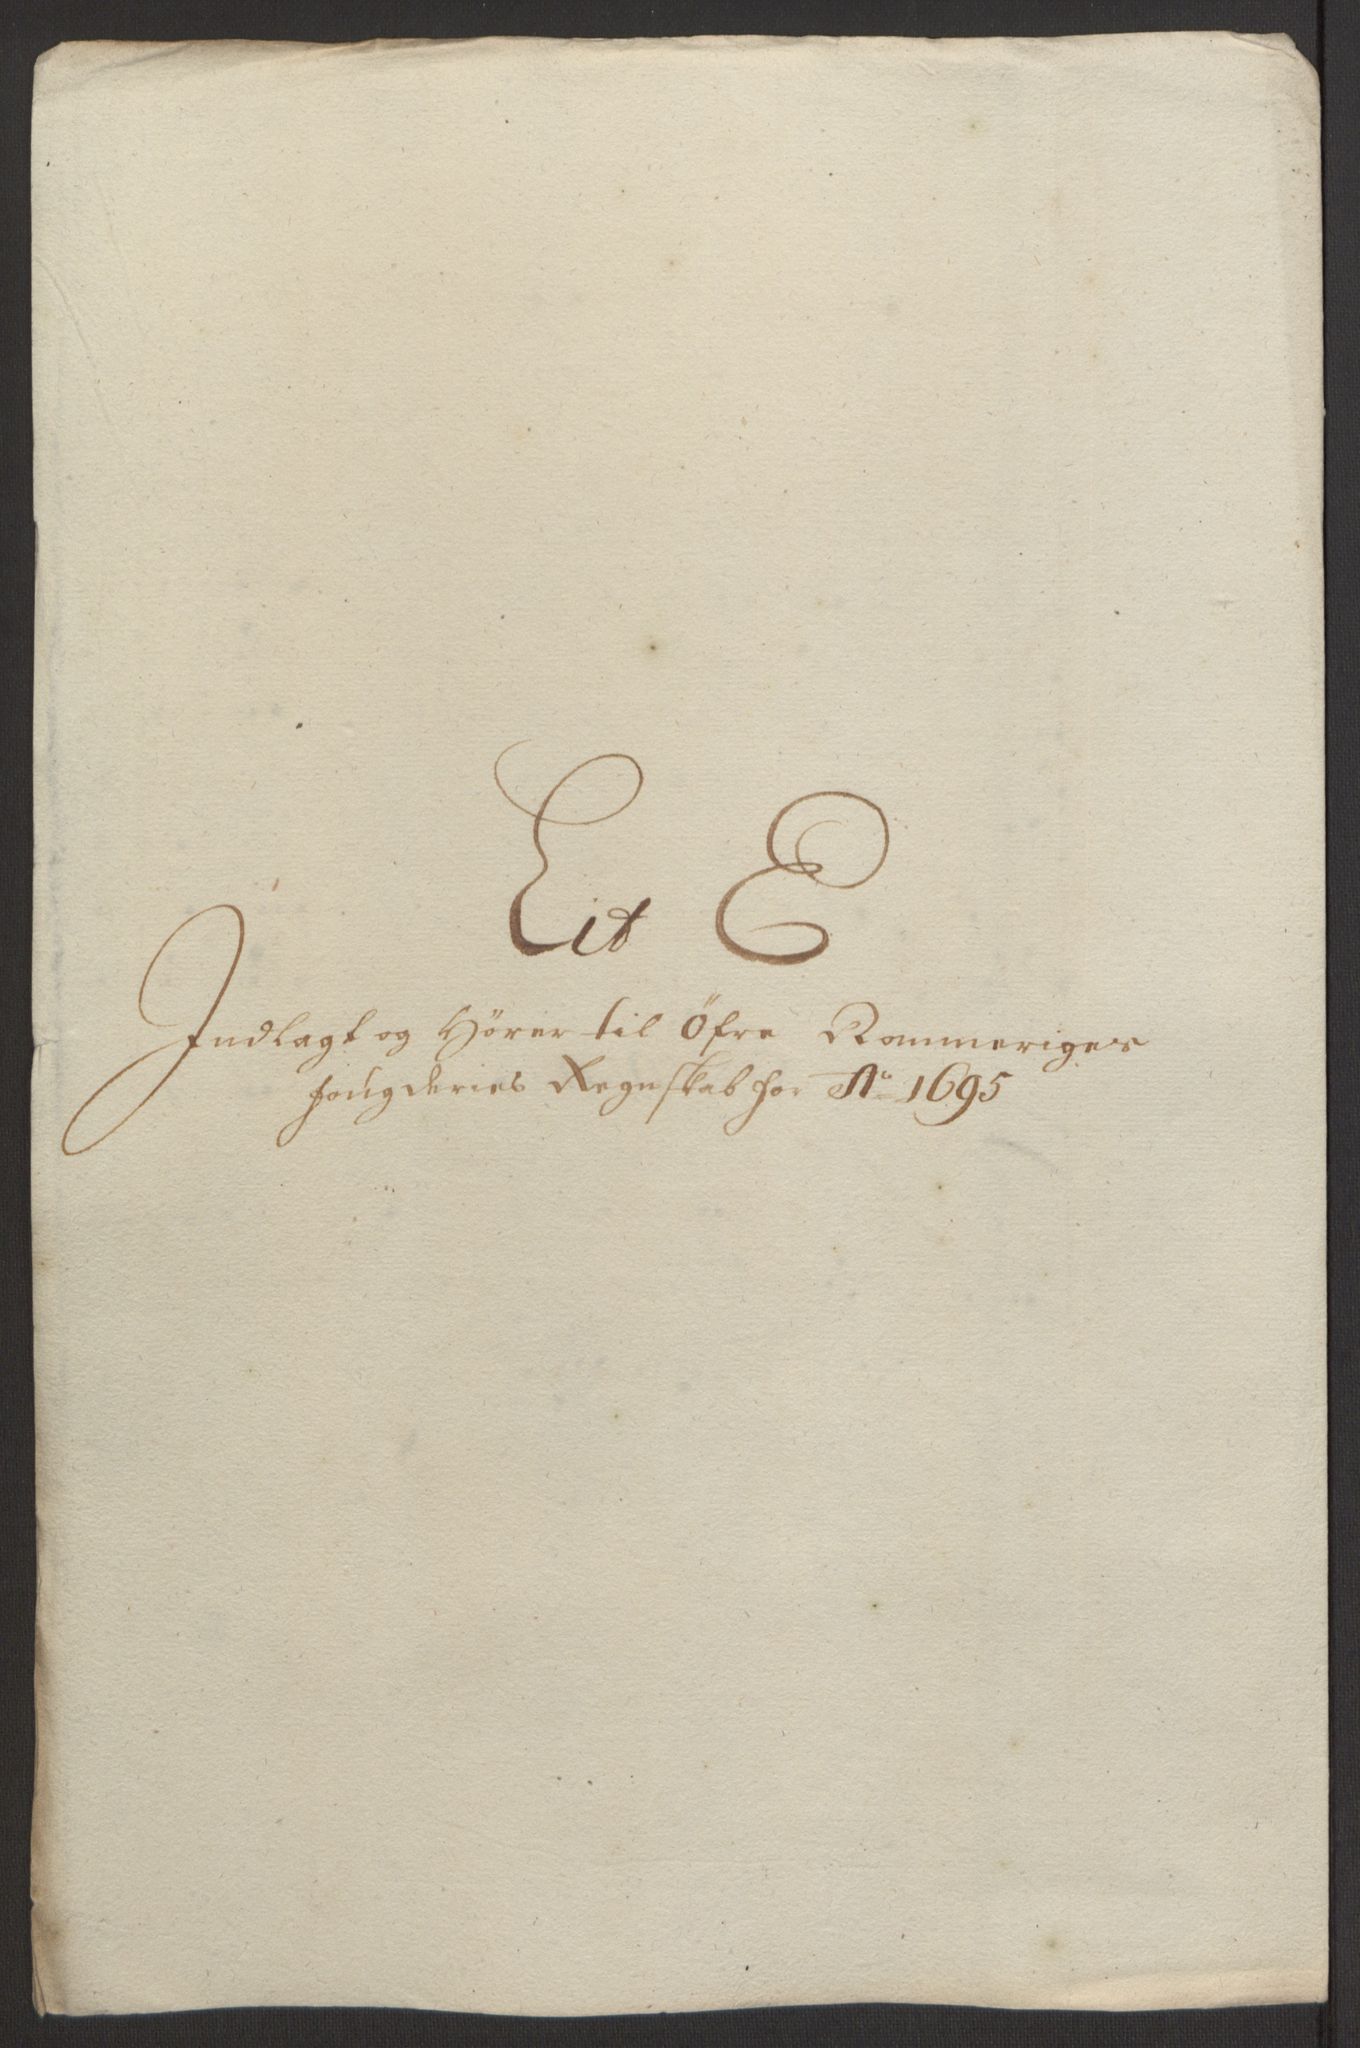 Lit E
Indlagt og Hörer til Öfre Rommeriges
fougderies Regnskab for Ao 1695